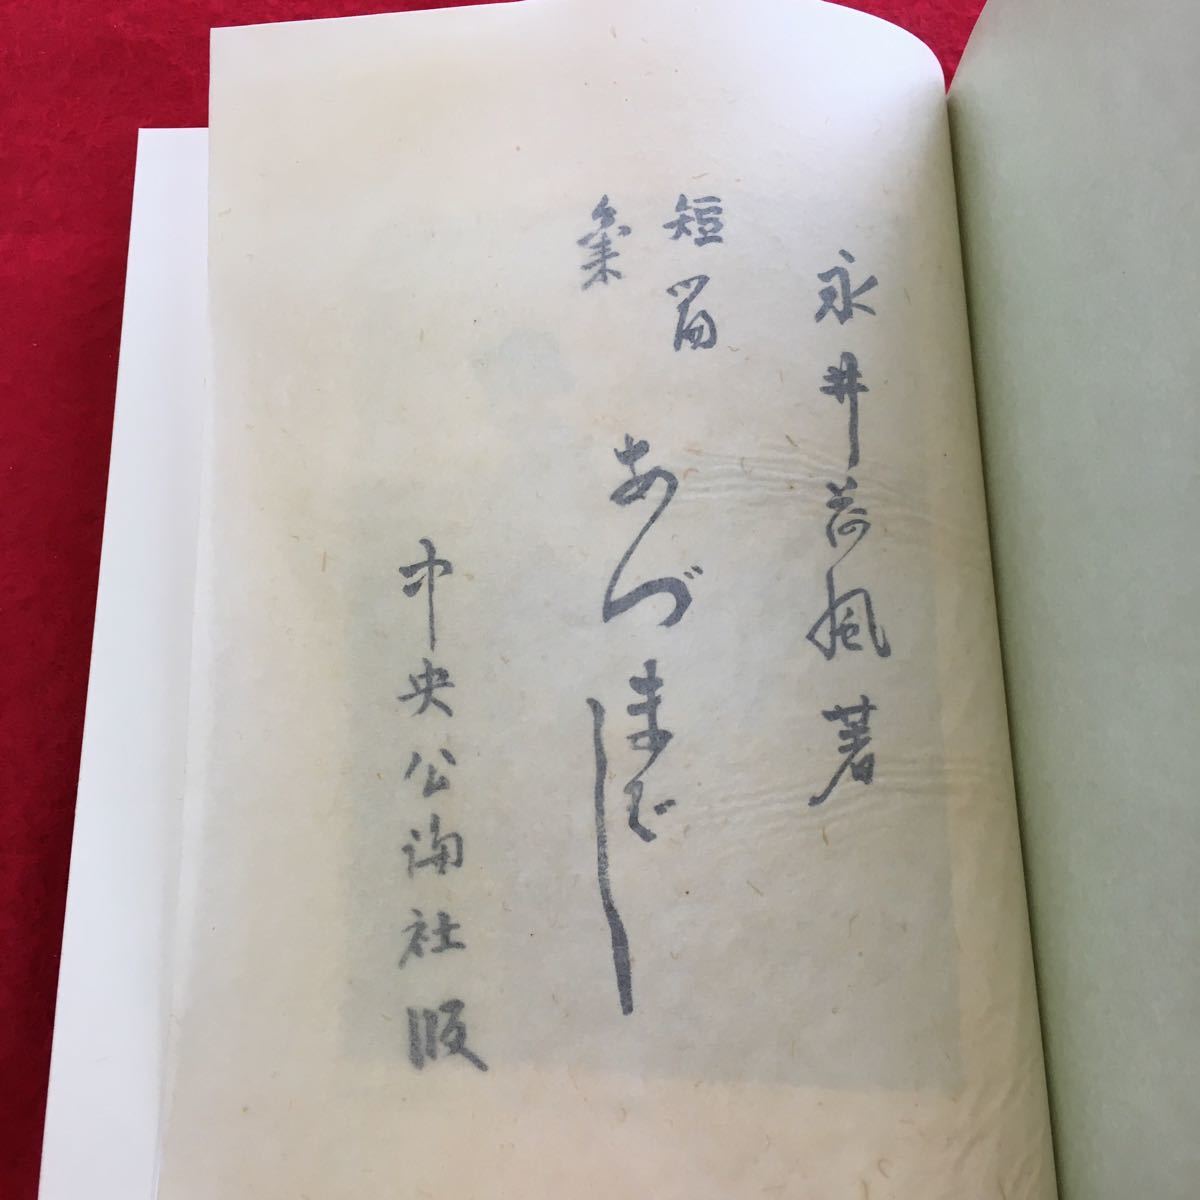 永井荷風著
短篇
集
あづまばし
中央公論社版